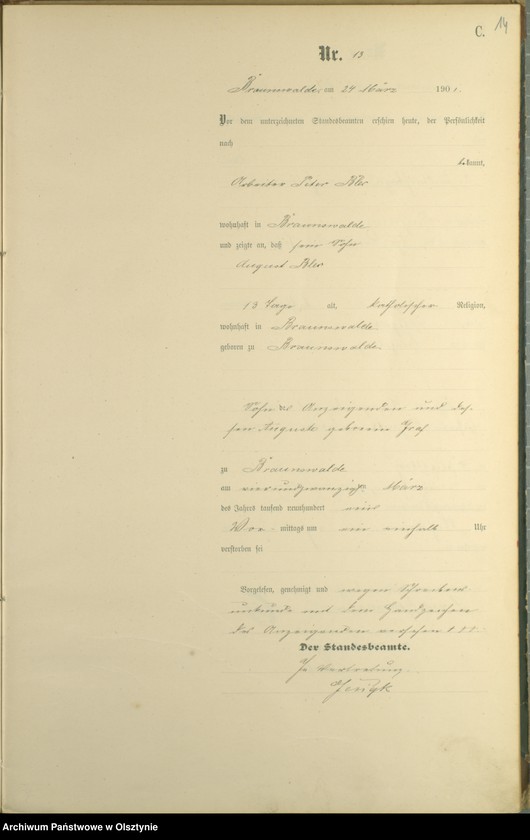 C. 14
Nr. 13
Braunswalde, am 24 März 1901.
Vor dem unterzeichneten Standesbeamten erschien heute, der Persönlichkeit
nach
bekannt,
Arbeiter Peter
wohnhaft in Braunswalde
und zeigte an, daß sein Sohn
August
13 Tage alt, katholischer Religion,
wohnhaft in Braunswalde
geboren zu Braunswalde.
Sohn des Anzeigenden und des-
sen Auguste geborene
zu Braunswalde
am vierundzwanzigsten März
des Jahres tausend neunhundert eins
Vor- mittags um ein einhalb Uhr
verstorben sei
Vorgelesen, genehmigt und wegen Schreibens
unkunde mit dem Handzeichen
des Anzeigenden versehen
Der Standesbeamte.
In Vertretung.
Archiwum Państwowe w Olsztynie